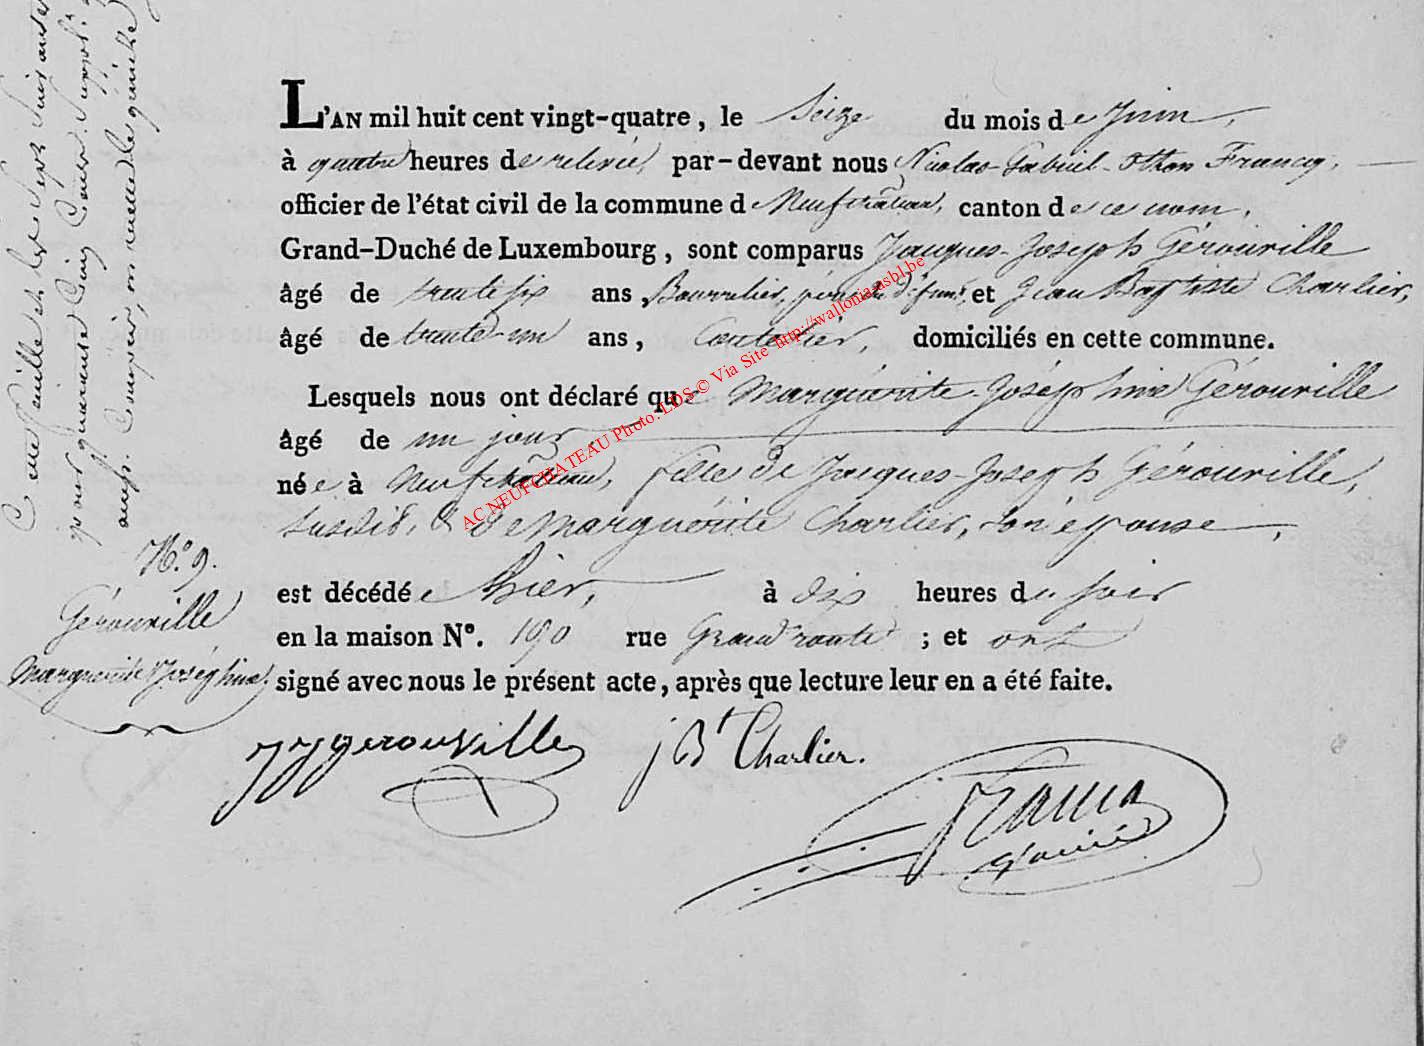 Cette feuille et les sept suivantes
pour quarante cinq
ensf.
L'AN mil huit cent vingt-quatre, le Seize du mois de Juin,
à quatre heures de relevée, par-devant nous Nicolas-Gabriel-Othon Francq,
officier de l'état civil de la commune de Neufchâteau, canton de ce nom,
Grand-Duché de Luxembourg, sont comparus Jacques-Joseph Gérouville
âgé de trente six ans, Bourrelier, père du défunt et Jean Baptiste Charlier,
âgé de trente-un ans, Coutelier, domiciliés en cette commune.
Lesquels nous ont déclaré que Marguérite-Joséphine Gérouville
âgé de un jour,
née à Neufchâteau, fille de Jacques-Joseph Gérouville,
susdit, & de Marguérite Charlier, son épouse,
No. 9.
Gérouville
Marguérite Joséphine.
est décédée hier, à dix heures du soir
en la maison No. 190 rue Grand'route ; et ont
signé avec nous le présent acte, après que lecture leur en a été faite.
JJgerouville J Bt Charlier.
AC NEUFCHATEAU Photo. LDS © Via Site http://wallonia-asbl.be